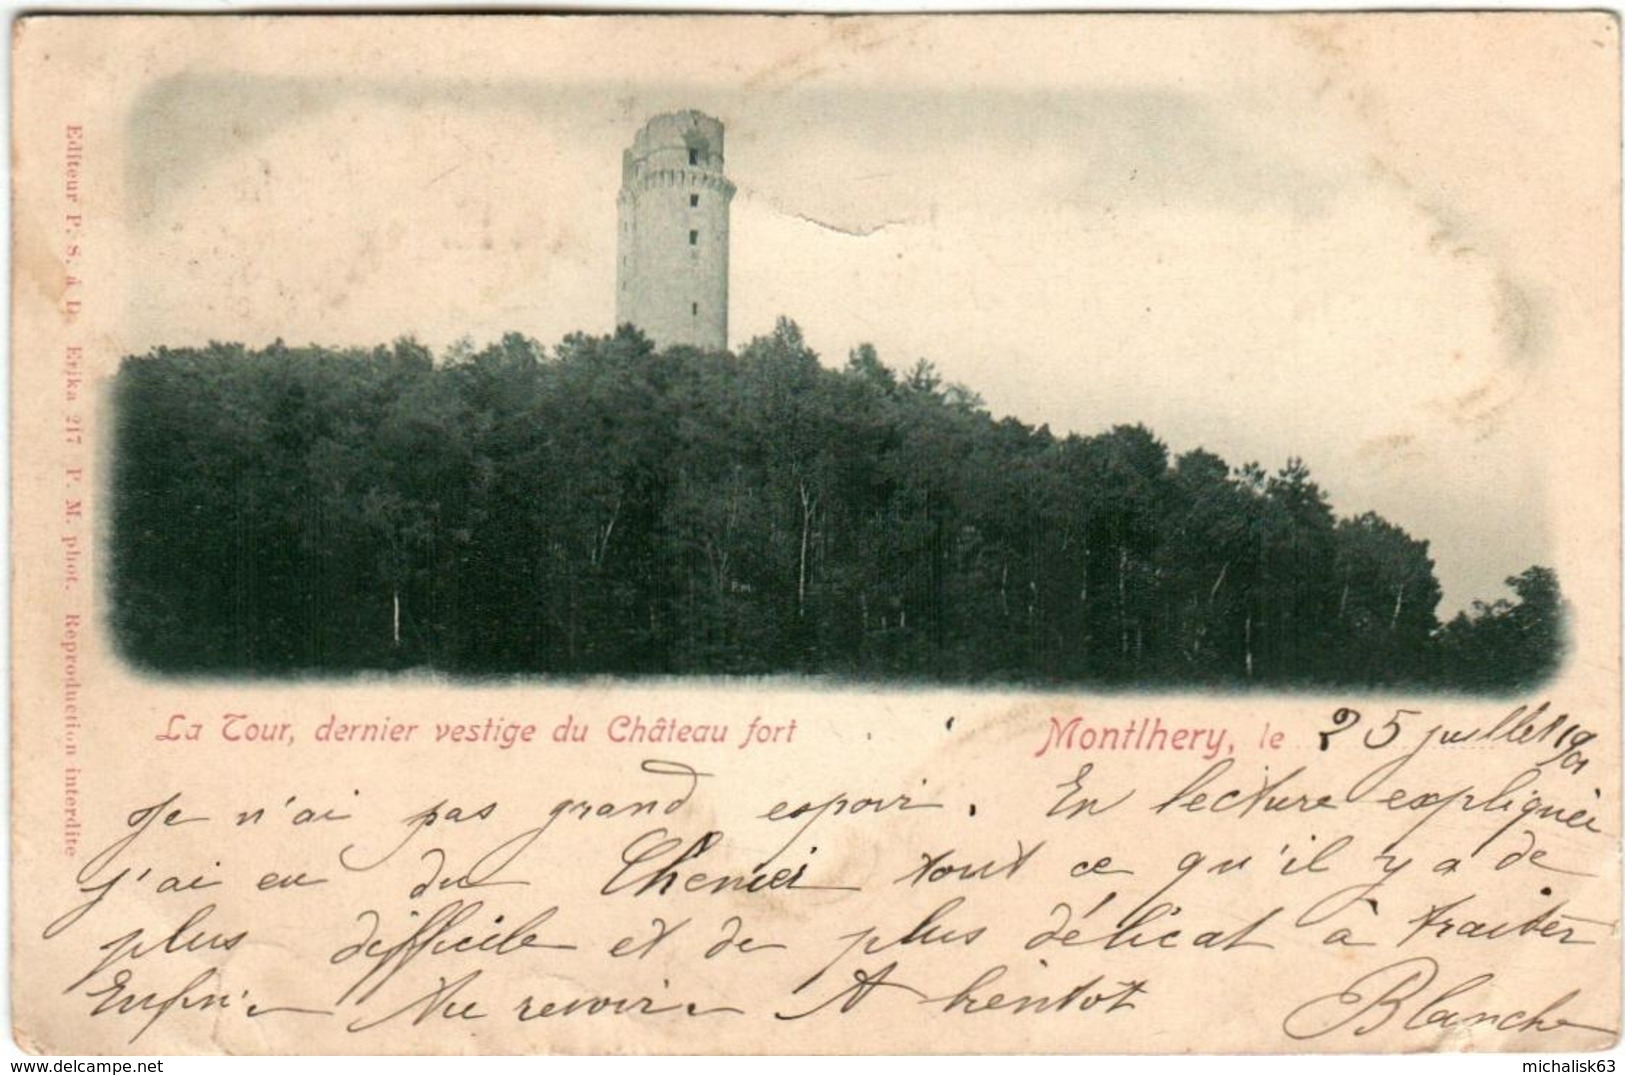 Editeur P. S. à D. Erika 217 P. M. phot. Reproduction interdite
P.M.
La Tour, dernier vestige du Château fort
Montlhery, le 25 juillet 1901
Je n'ai pas grand espoir. En lecture expliquée
j'ai eu du Chénier tout ce qu'il y a de
plus difficile et de plus délicat à traiter
Enfin. Au revoir. A bientôt Blanche
delcampe.net
michalisk63